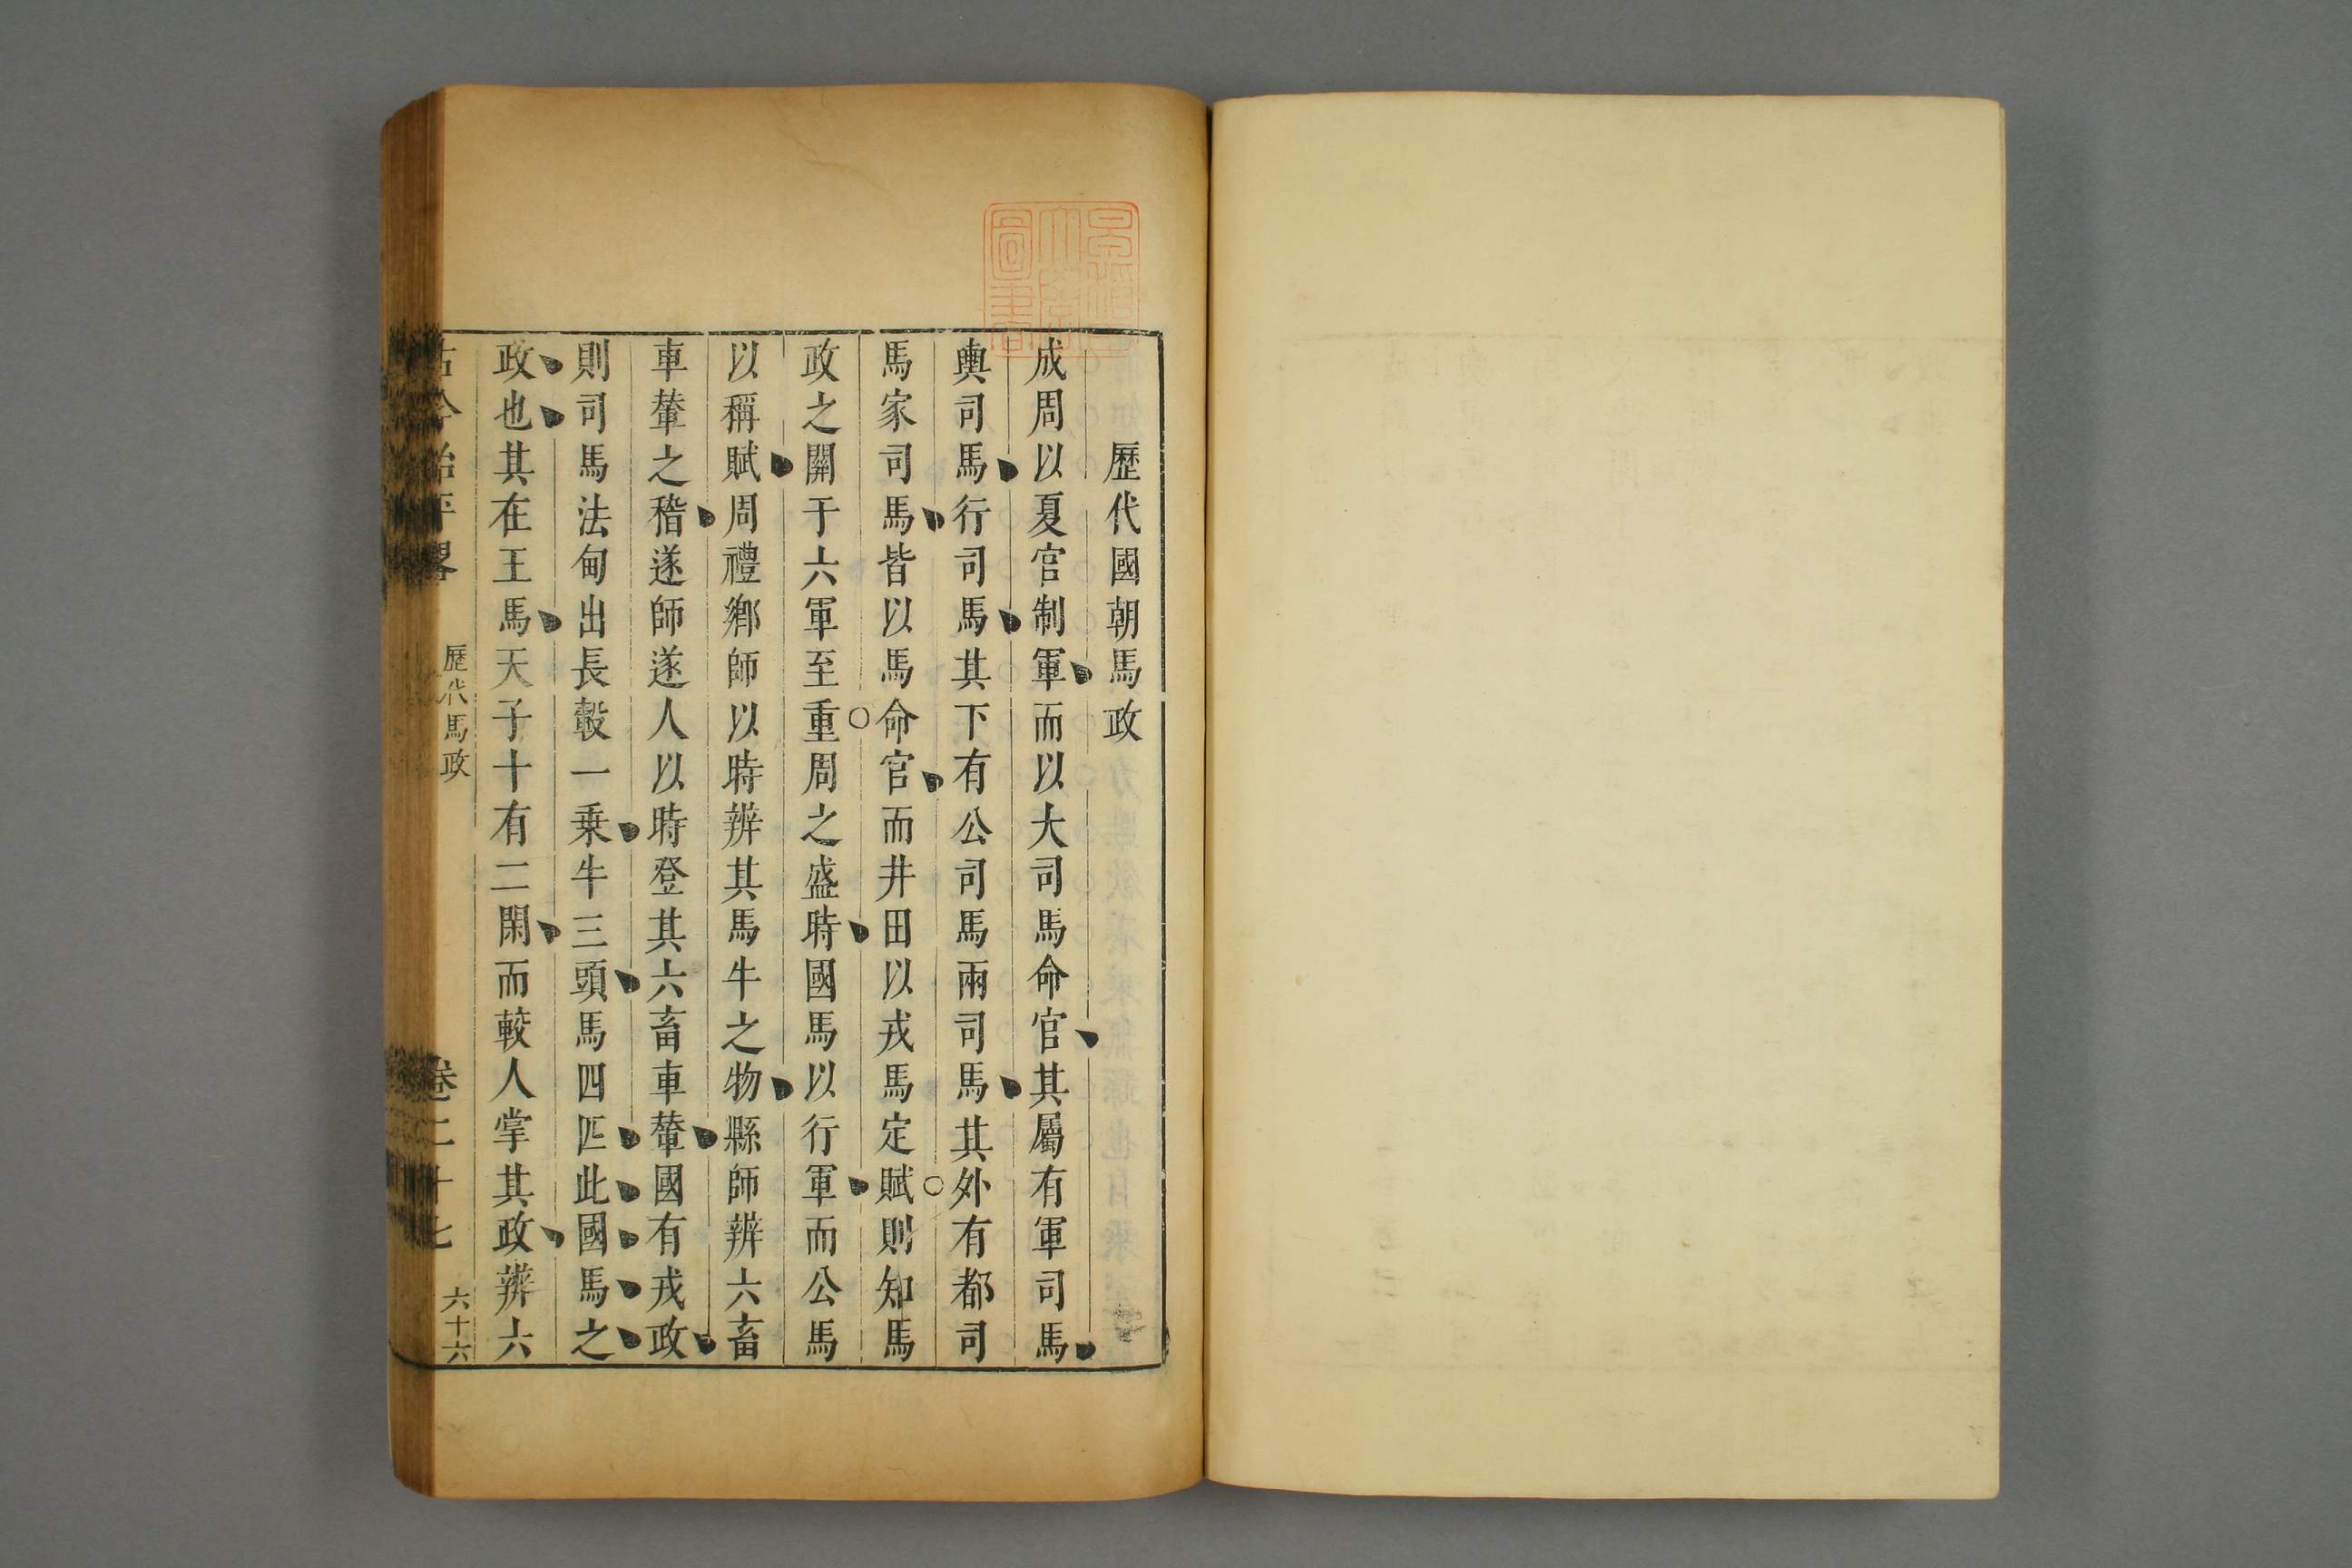 歷代國朝馬政
成周以夏官制軍而以大司馬命官其屬有軍司馬
輿司馬行司馬其下有公司馬兩司馬其外有都司
馬家司馬皆以馬命官而井田以戎馬定賦則知馬
政之關于六軍至重周之盛時國馬以行軍而公馬
以稱賦周禮鄉師以時辨其馬牛之物縣師辨六畜
車輦之稽遂師遂人以時登其六畜車輦國有戎政
則司馬法甸出長轂一乗牛三頭馬四匹此國馬之
政也其在王馬天子十有二閑而較人掌其政辨六
古今治平畧
歷代馬政
卷二十七
六十六